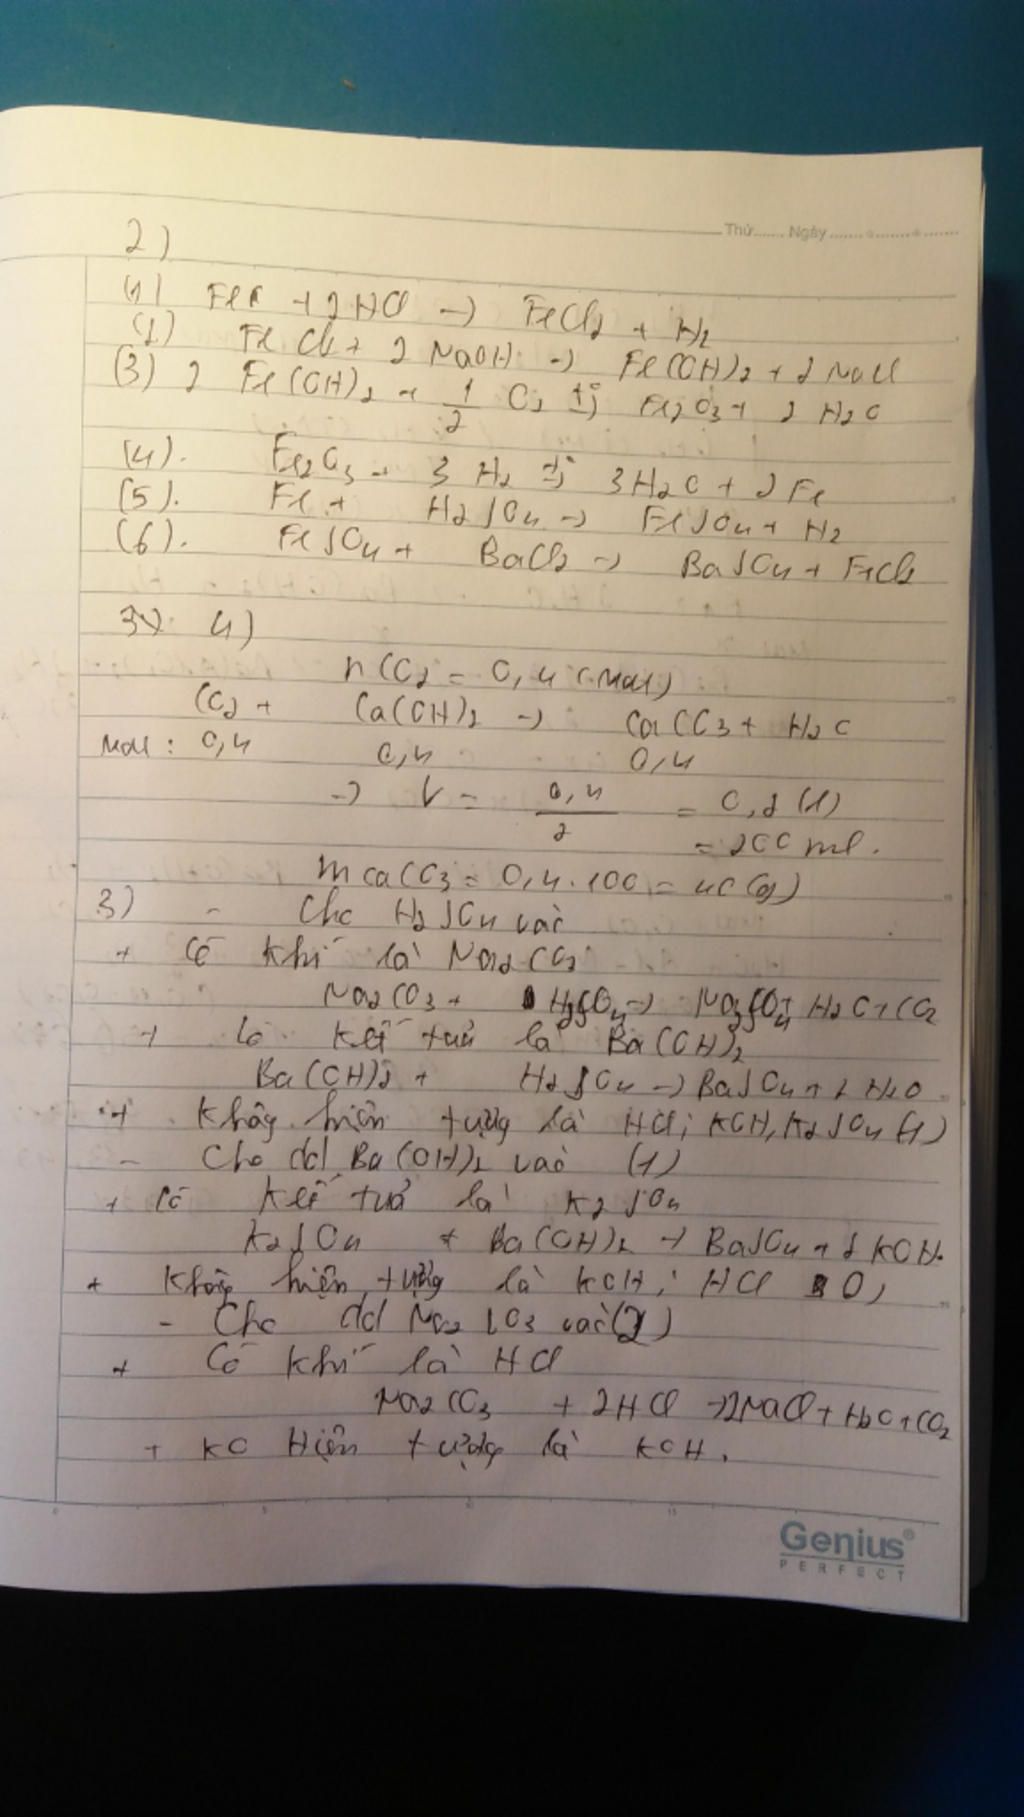 Thứ...... Ngày.......
2)
(1) Fe + 2HCl -> FeCl2 + H2
(2) FeCl2 + 2 NaOH -> Fe(OH)2 + 2 NaCl
(3) 2 Fe(OH)2 + 1/2 O2 t° -> Fe2O3 + 2 H2O
(4). Fe2O3 + 3 H2 t° -> 3H2O + 2 Fe
(5). Fe + H2SO4 -> FeSO4 + H2
(6). FeSO4 + BaCl2 -> BaSO4 + FeCl2
4)
nCO2 = 0,4 (mol)
CO2 + Ca(OH)2 -> CaCO3 + H2O
Mol: 0,4 0,4 0,4
-> V = 0,4/2 = 0,2 (l)
= 200 ml.
mCaCO3 = 0,4.100 = 40(g)
3) - Cho H2SO4 vào
+ Có khí là Na2CO3
Na2CO3 + H2SO4 -> Na2SO4 + H2O + CO2
+ Có kết tủa là Ba(OH)2
Ba(OH)2 + H2SO4 -> BaSO4 + 2 H2O
+ Không hiện tượng là HCl, KOH, K2SO4 (1)
- Cho dd Ba(OH)2 vào (1)
+ Có kết tủa là K2SO4
K2SO4 + Ba(OH)2 -> BaSO4 + 2 KOH.
+ Không hiện tượng là KOH, HCl
- Cho dd Na2CO3 vào (2)
+ Có khí là HCl
Na2CO3 + 2HCl -> 2NaCl + H2O + CO2
+ KO Hiện tượng là KOH.
Genius®
PERFECT